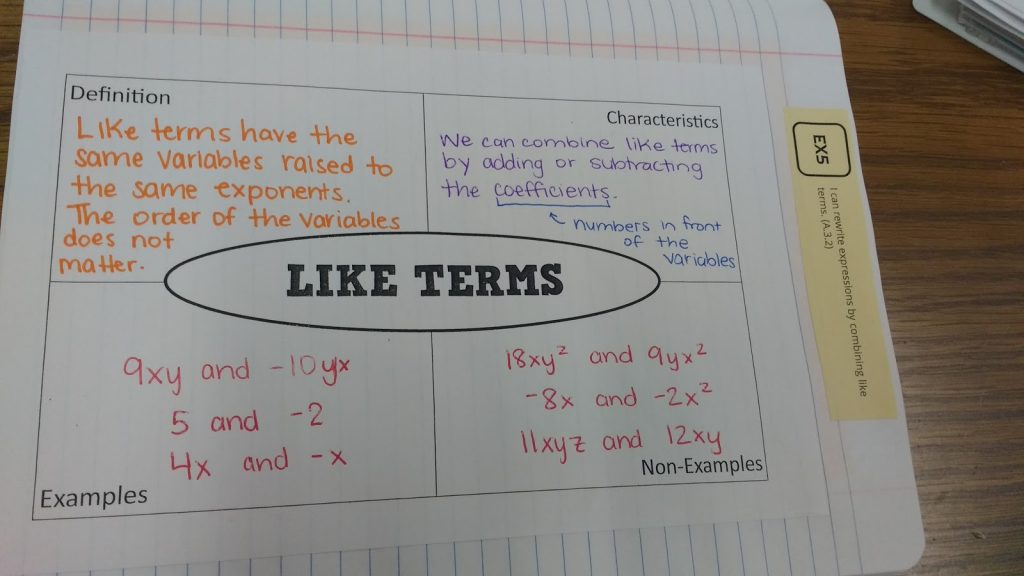 Definition
Like terms have the
same variables raised to
the same exponents.
The order of the variables
does not
matter.
Characteristics
We can combine like terms
by adding or subtracting
the coefficients.
numbers in front
of the
variables
LIKE TERMS
9xy and -10yx
5 and -2
4x and -x
Examples
18xy² and 9yx²
-8x and -2x²
11xyz and 12xy
Non-Examples
EX5
I can rewrite expressions by combining like
terms. (A.3.2)